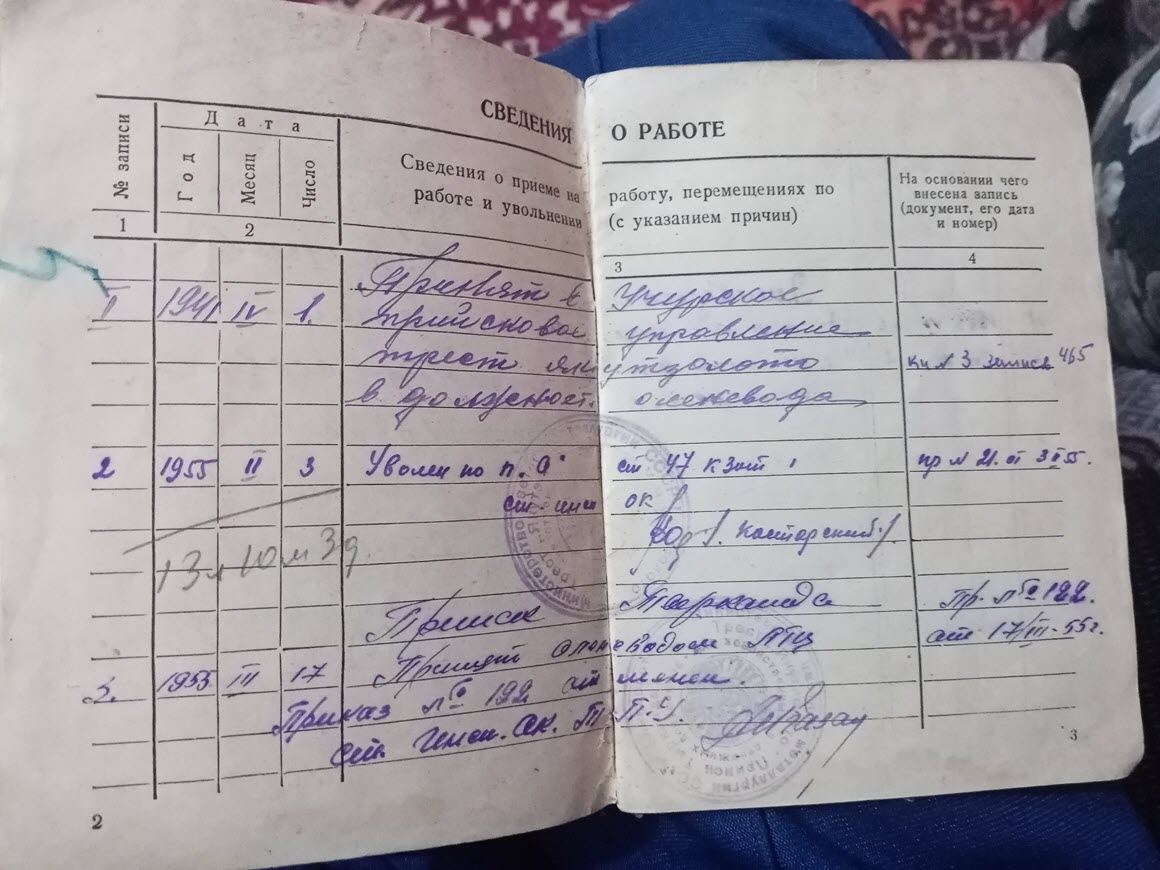 СВЕДЕНИЯ О РАБОТЕ
№ записи
Дата
Год
Месяц
Число
Сведения о приеме на работу, перемещениях по
работе и увольнении (с указанием причин)
На основании чего
внесена запись
(документ, его дата
и номер)
1 2 3 4
1941 IV 1. Принят в Учурское
приисковое управление
трест якутзолото кн N 3 запись 465
в должност. оленевода
2 1955 II 3 Уволен по п. а ст 47 кзот пр N 21. от 3 II 55.
ст. инсп ОК
Касторский
13 л 10 м 3 д.
Прииск Пр. № 122.
от 17/III-55 г.
3. 1955 III 17 Принят оленеводом
Приказ № 122 от
ст. Инсп. ок. Т.П.У.
2
3